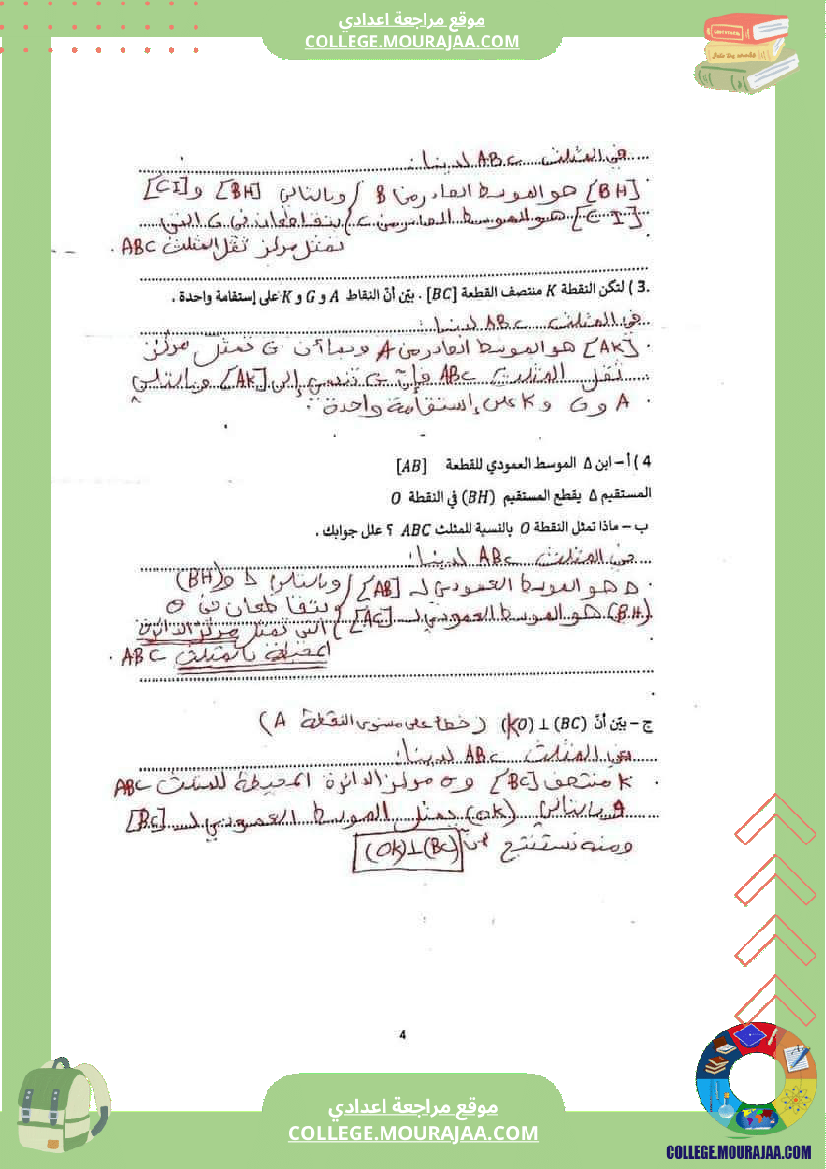 موقع مراجعة اعدادي
COLLEGE.MOURAJAA.COM
في المثلث ABC لدينا :
[BH] هو الموسط الصادر من B / وبالتالي [BH] و [CI]
[CI] هو الموسط الصادر من C / يتقاطعان في G التي
تمثل مركز ثقل المثلث ABC .
3 ) لتكن النقطة K منتصف القطعة [BC] . بيّن أنّ النقاط A و G و K على إستقامة واحدة .
في المثلث ABC لدينا :
[AK] هو الموسط الصادر من A وبما أن G تمثل مركز
ثقل المثلث ABC فإنّ G تنتمي إلى [AK] وبالتالي
A و G و K على إستقامة واحدة .
4 ) أ – ابن Δ الموسط العمودي للقطعة [AB]
المستقيم Δ يقطع المستقيم (BH) في النقطة O
ب – ماذا تمثل النقطة O بالنسبة للمثلث ABC ؟ علل جوابك .
في المثلث ABC لدينا :
Δ هو الموسط العمودي لـ [AB] / وبالتالي Δ و (BH)
(BH) هو الموسط العمودي لـ [AC] / يتقاطعان في O
التي تمثل مركز الدائرة
المحيطة بالمثلث ABC .
ج – بيّن أنّ (KO) ⊥ (BC) (خطأ على مستوى النقطة A)
في المثلث ABC لدينا :
K منتصف [BC] و O مركز الدائرة المحيطة للمثلث ABC
وبالتالي (OK) يمثل الموسط العمودي لـ [BC]
ومنه نستنتج أنّ (OK)⊥(BC)
4
موقع مراجعة اعدادي
COLLEGE.MOURAJAA.COM
COLLEGE.MOURAJAA.COM